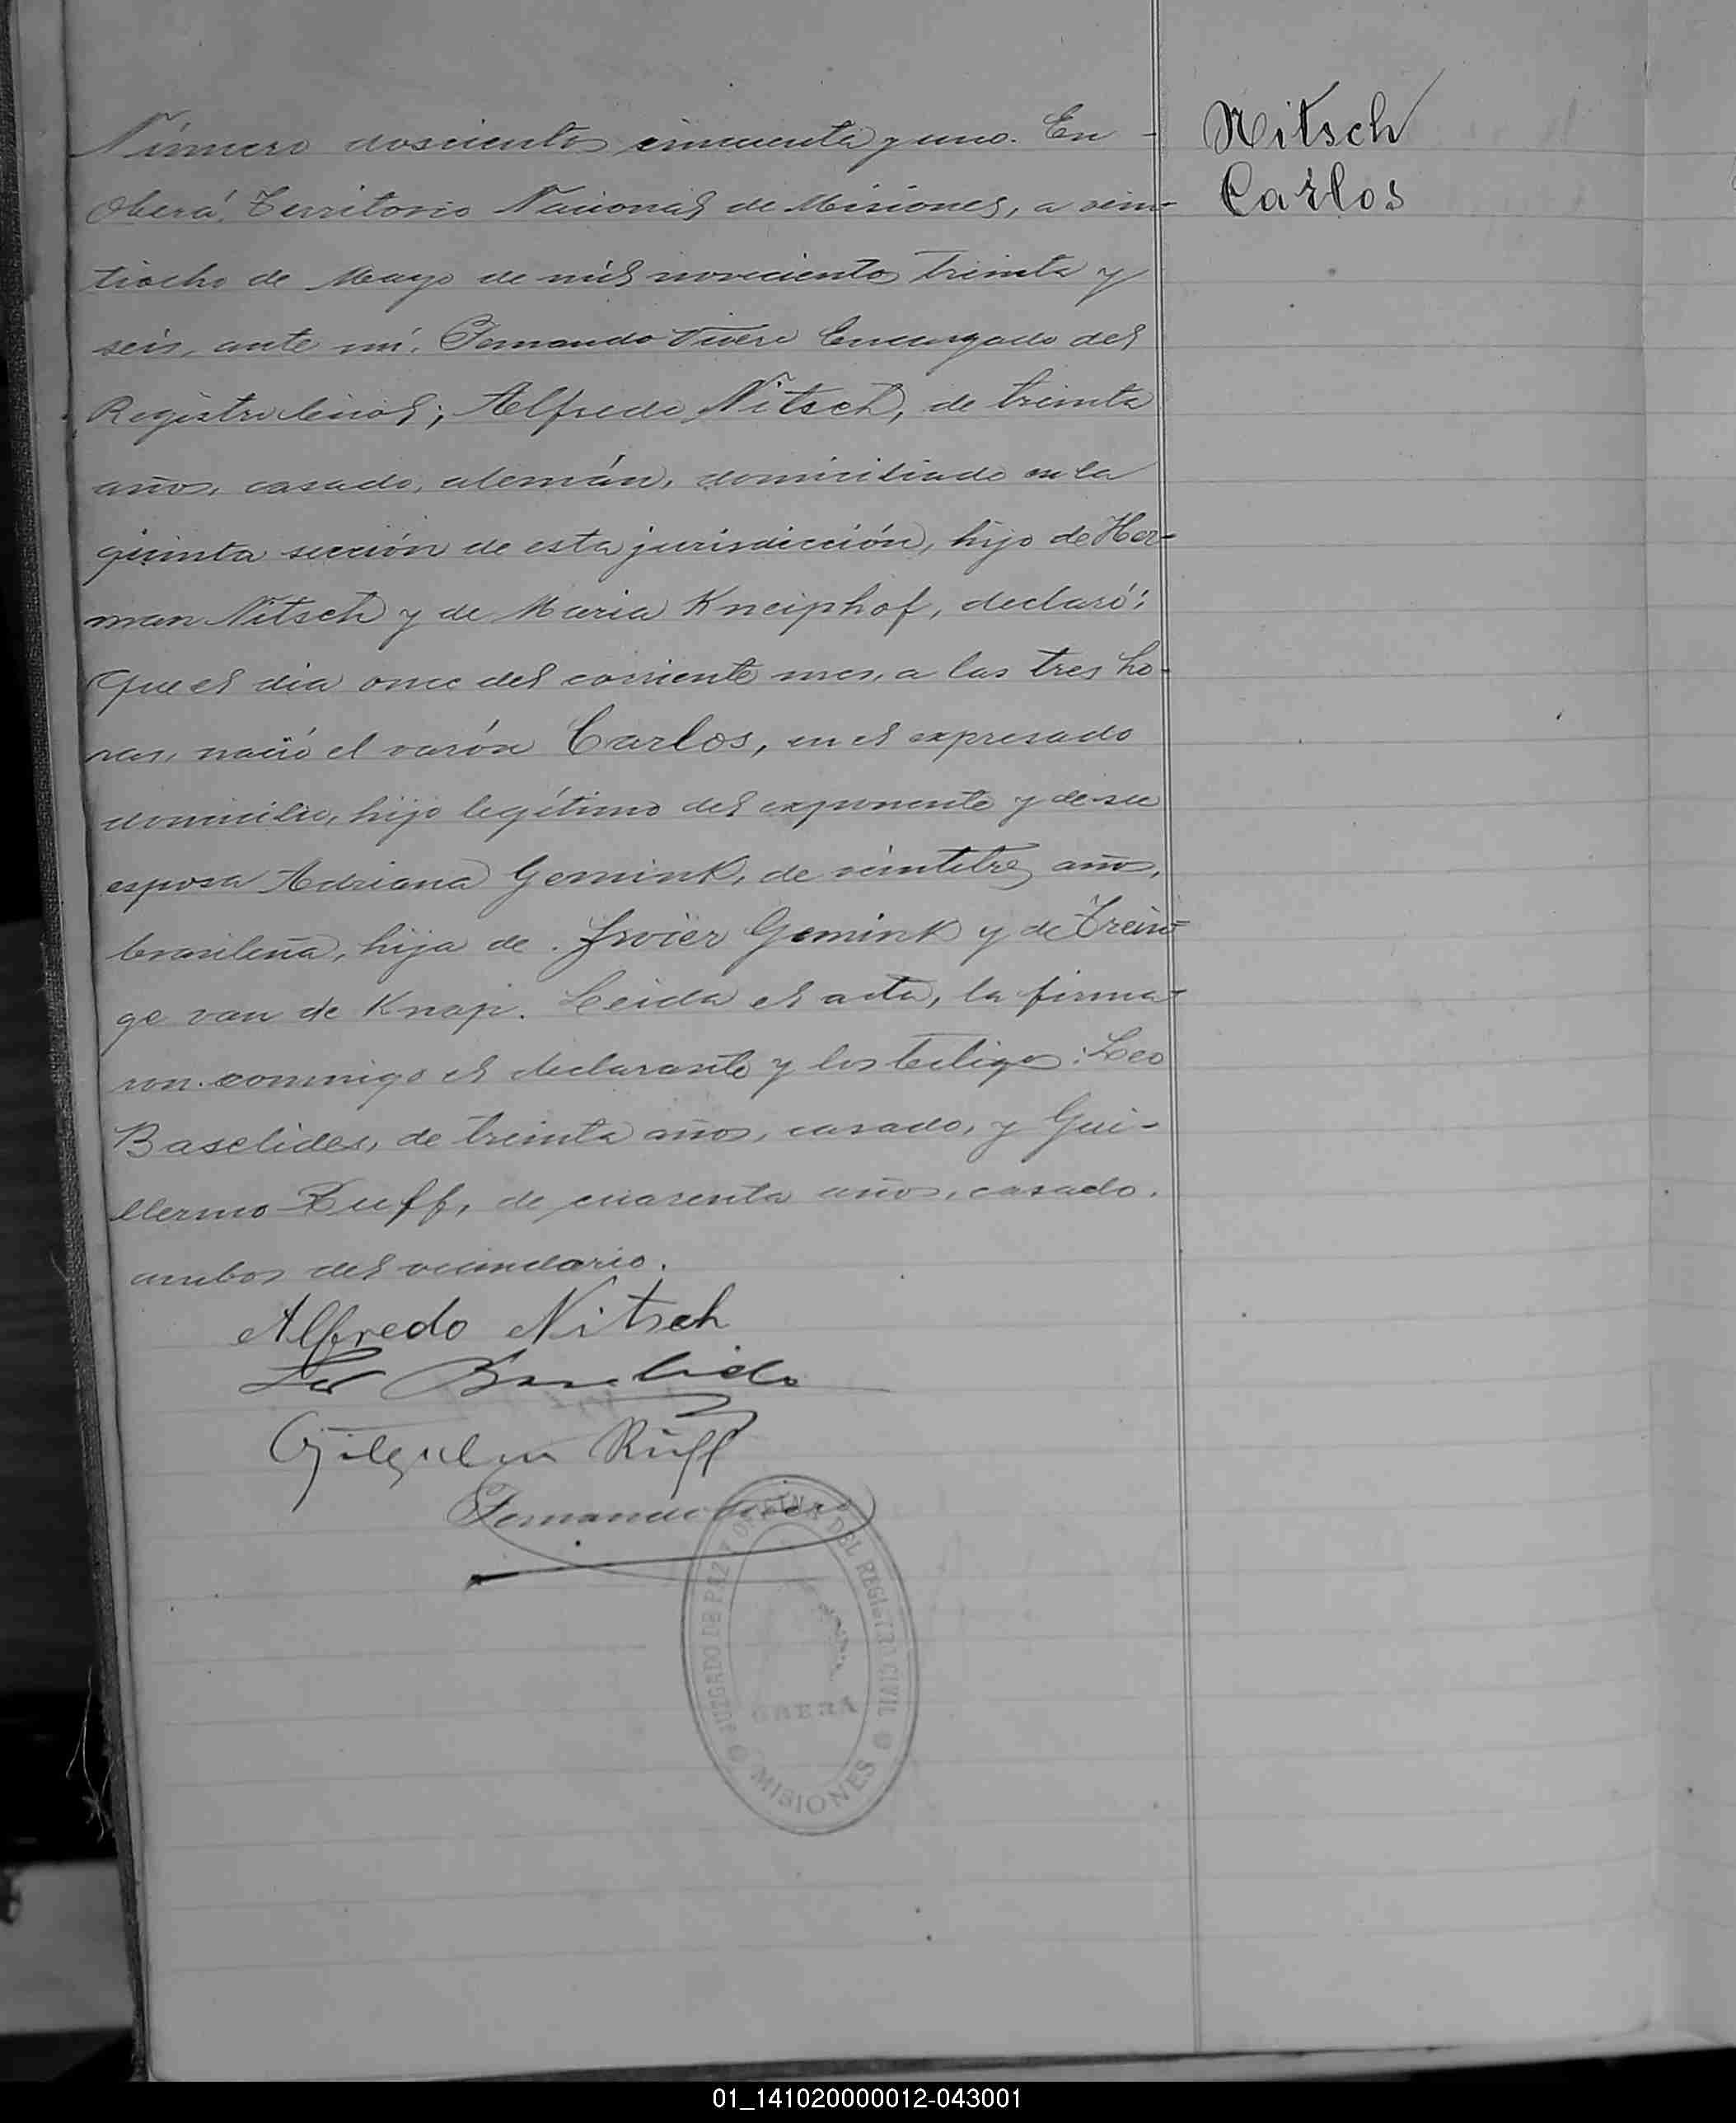 Número doscientos cincuenta y uno. En -
Oberá, Territorio Nacional de Misiones, a vein-
tiocho de Mayo de mil novecientos treinta y
seis, ante mí, Fernando Vivero Encargado del
Registro Civil; Alfredo Nitsch, de treinta
años, casado, alemán, domiciliado en la
quinta sección de esta jurisdicción, hijo de Her-
man Nitsch y de Maria Kneiphof, declaró:
Que el día once del corriente mes, a las tres ho-
ras, nació el varón Carlos, en el expresado
domicilio, hijo legítimo del exponente y de su
esposa Adriana Gemink, de veintitres años,
brasileña, hija de Gemink y de
ge van de Knap. Leida el acta, la firma-
ron conmigo el declarante y los testigos: Leo
Baselides, de treinta años, casado, y Gui-
llermo Ruff, de cuarenta años, casado,
ambos del vecindario.
Alfredo Nitsch
Leo Baselides
Ruff
Fernando
JUZGADO DE PAZ Y OFICINA DEL REGISTRO CIVIL
OBERA
MISIONES
Nitsch
Carlos
01_141020000012-043001